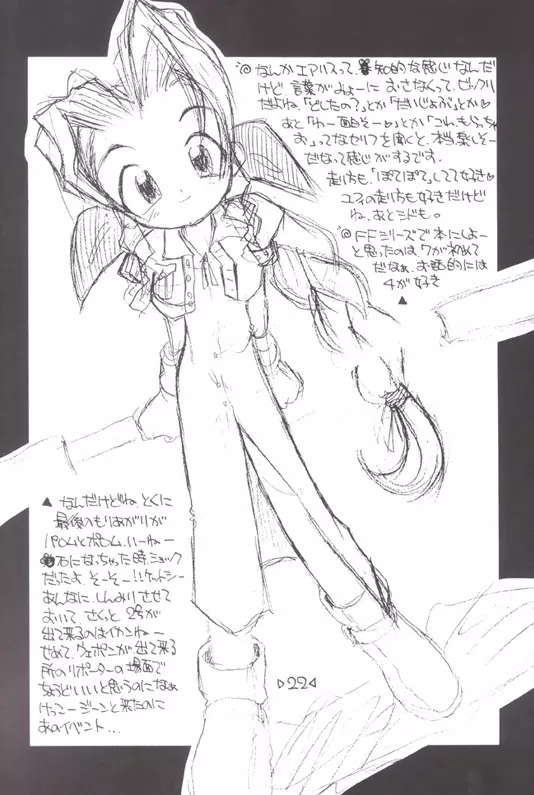 ◎なんかエアリスって、知的な感じなんだ
けど、言葉がみょーにおさなくって、ビックリ
だよね。「どしたの?」とか「だいじょぶ」とか♡
あと「わー面白そー♡」とか「コレ、もらっちゃ
お」ってなセリフを聞くと、本当楽しそー
だなって感じがするです。
走り方も、「ぽてぽて」してて好き♡
ユフィの走り方も好きだけど
ね、あとシドも。
◎FFシリーズで本にしよー
と思ったのは7が初めて
だなぁ、お話的には
4が好き
▲
▲ なんだけどね、とくに
最後のもりあがりが
パロムとポロム、いーねー
石になっちゃった時、ショック
だったよ、そーそー!!ケットシー
あんなに、しんみりさせて
おいて、さくっと2号が
出て来るのはイカンねー
せめて、ウェポンが出て来る
所のリポーターの場面で
ちょうどいいと思うのになぁ
けっこージーンと来たのに
あのイベント...
▷22◁